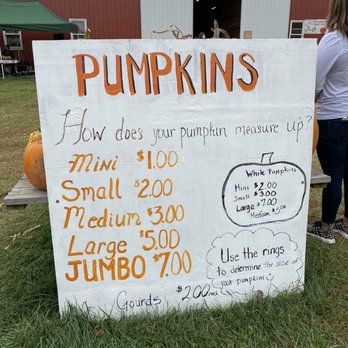 PUMPKINS
How does your pumpkin measure up?
Mini $1.00
Small $2.00
Medium $3.00
Large $5.00
JUMBO $7.00
Gourds $2.00
White Pumpkins
Mini $2.00
Small $3.00
Large $7.00
Medium $5.00
Use the rings
to determine the size of
your pumpkins